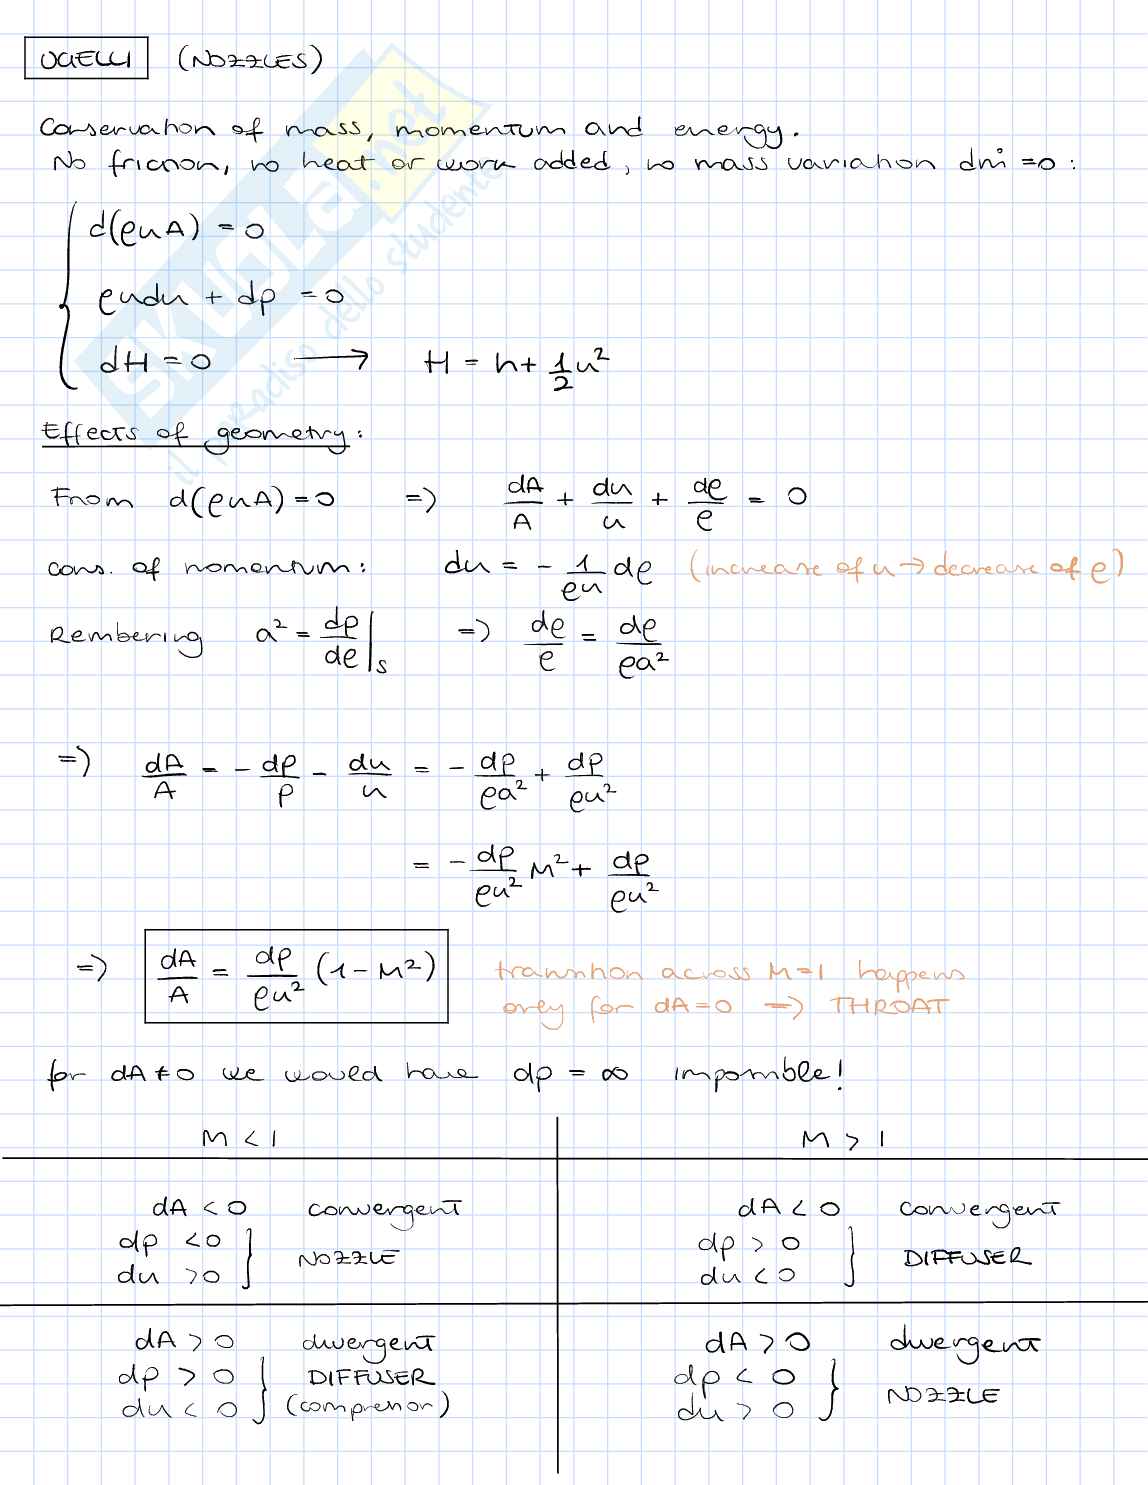 UGELLI (NOZZLES)
Conservation of mass, momentum and energy.
No friction, no heat or work added, no mass variation dṁ = 0 :
d(ρuA) = 0
ρudu + dp = 0
dH = 0 ⟶ H = h + 1/2 u²
Effects of geometry:
From d(ρuA) = 0 => dA/A + du/u + dρ/ρ = 0
cons. of momentum: du = - 1/ρu dρ (increase of u → decrease of ρ)
Rembering a² = dp/dρ|s => dρ/ρ = dρ/ρa²
=> dA/A = - dp/p - du/u = - dp/ρa² + dp/ρu²
= - dp/ρu² M² + dp/ρu²
=> dA/A = dp/ρu² (1 - M²) transition across M=1 happens
only for dA = 0 => THROAT
for dA ≠ 0 we would have dp = ∞ impossible!
M < 1 M > 1
dA < 0 convergent dA < 0 convergent
dp < 0 dp > 0
NOZZLE DIFFUSER
du > 0 du < 0
dA > 0 divergent dA > 0 divergent
dp > 0 DIFFUSER dp < 0
NOZZLE
du < 0 (compressor) du > 0
SKUOLA.net
il paradiso dello studente